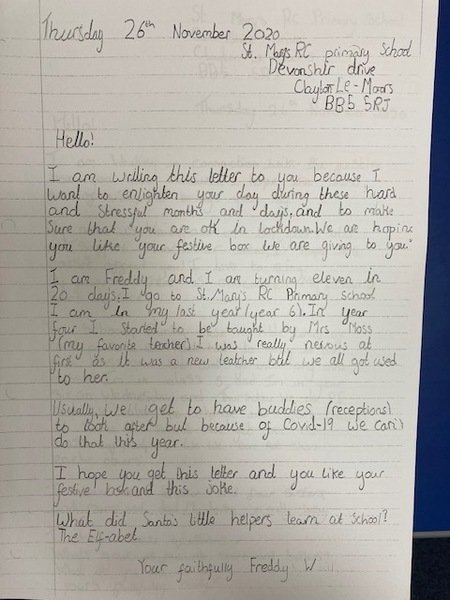 Thursday 26th November 2020
St. Mary's RC primary School
Devonshir drive
Clayton Le-Moors
BB5 5RJ
Hello!
I am writing this letter to you because I
want to enlighten your day during these hard
and stressful months and days, and to make
Sure that you are ok in lockdown. We are hoping
you like your festive box we are giving to you.
I am Freddy and I am turning eleven in
20 days. I go to St. Mary's RC Primary school
I am in my last year (year 6). In year
four I started to be taught by Mrs Moss
(my favorite teacher). I was really nervous at
first as it was a new teatcher but we all got used
to her.
Usually, we get to have buddies (receptions)
to look after but because of Covid-19 we can't
do that this year.
I hope you get this letter and you like your
festive and this joke.
What did Santa's little helpers learn at School?
The Elf-abet
Your faithfully Freddy W